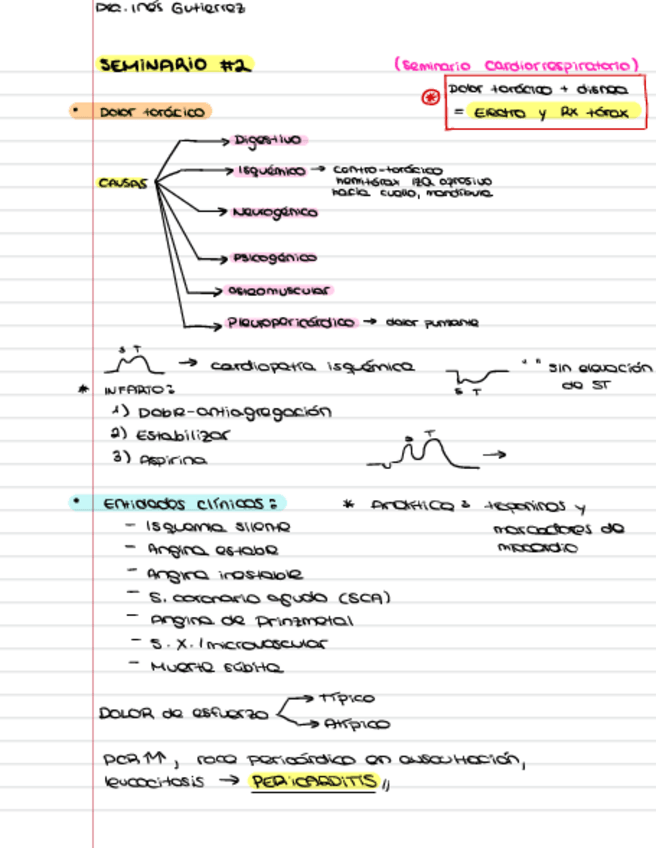 Dra. Inés Gutierrez
SEMINARIO #2
(Seminario Cardiorrespiratorio)
Dolor torácico + disnea
= Electro y Rx tórax
• Dolor torácico
CAUSAS
→ Digestivo
→ Isquémico → centro-torácico
hemitórax izq opresivo
hacia cuello, mandíbula
→ Neurogénico
→ Psicogénico
→ osteomuscular
→ Pleuropericárdico → dolor punzante
S T
→ cardiopatía isquémica
S T
" " sin elevación
de ST
* INFARTO:
1) Doble-antiagregación
2) Estabilizar
3) Aspirina
S T
→
• Entidades clínicas:
* Analítica: troponinas y
marcadores de
miocardio
- Isquemia silente
- Angina estable
- Angina inestable
- S. coronario agudo (SCA)
- Angina de Prinzmetal
- S. X. / microvascular
- Muerte súbita
DOLOR de esfuerzo
→ Típico
→ Atípico
PCR ↑↑, roce pericárdico en auscultación,
leucocitosis → PERICARDITIS //